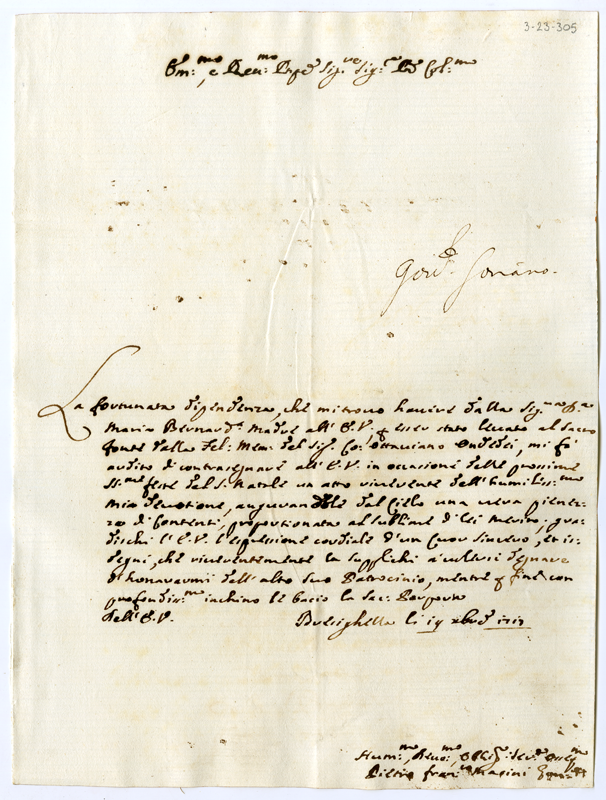 3-23-305
Em:mo, e Reu:mo
La fortunata dipendenza, che mi trovo havere dalla Sig:ra D.a
Maria Bernard:a Madre all' E.V. stato levato al Sacro
fonte dalla Fel: Mem: del Sig: Co: Ottauiano mi fà
ardito di contrasegnare all' E.V. in occasione delle prossime
SS:me feste del S. Natale un atto riuerente dell' humiliss:mo
mia deuotione, augurandole dal Cielo una vera pienez-
za di Contenti, proportionata al sublime di lei merito; gra-
dischi l' E.V. l'espressione cordiale d'un Cuor sincero, et is-
degni, che riuerentemente la supplichi a volersi degnare
d'honorarmi dell' alto suo Patrocinio, mentre per fine con
profondiss:mo inchino le bacio la Sac: Porpora
Dell' E.V. Brisighella li 19 xbre
Hum:mo, Deuo:mo,
Pietro Fran:co Masini